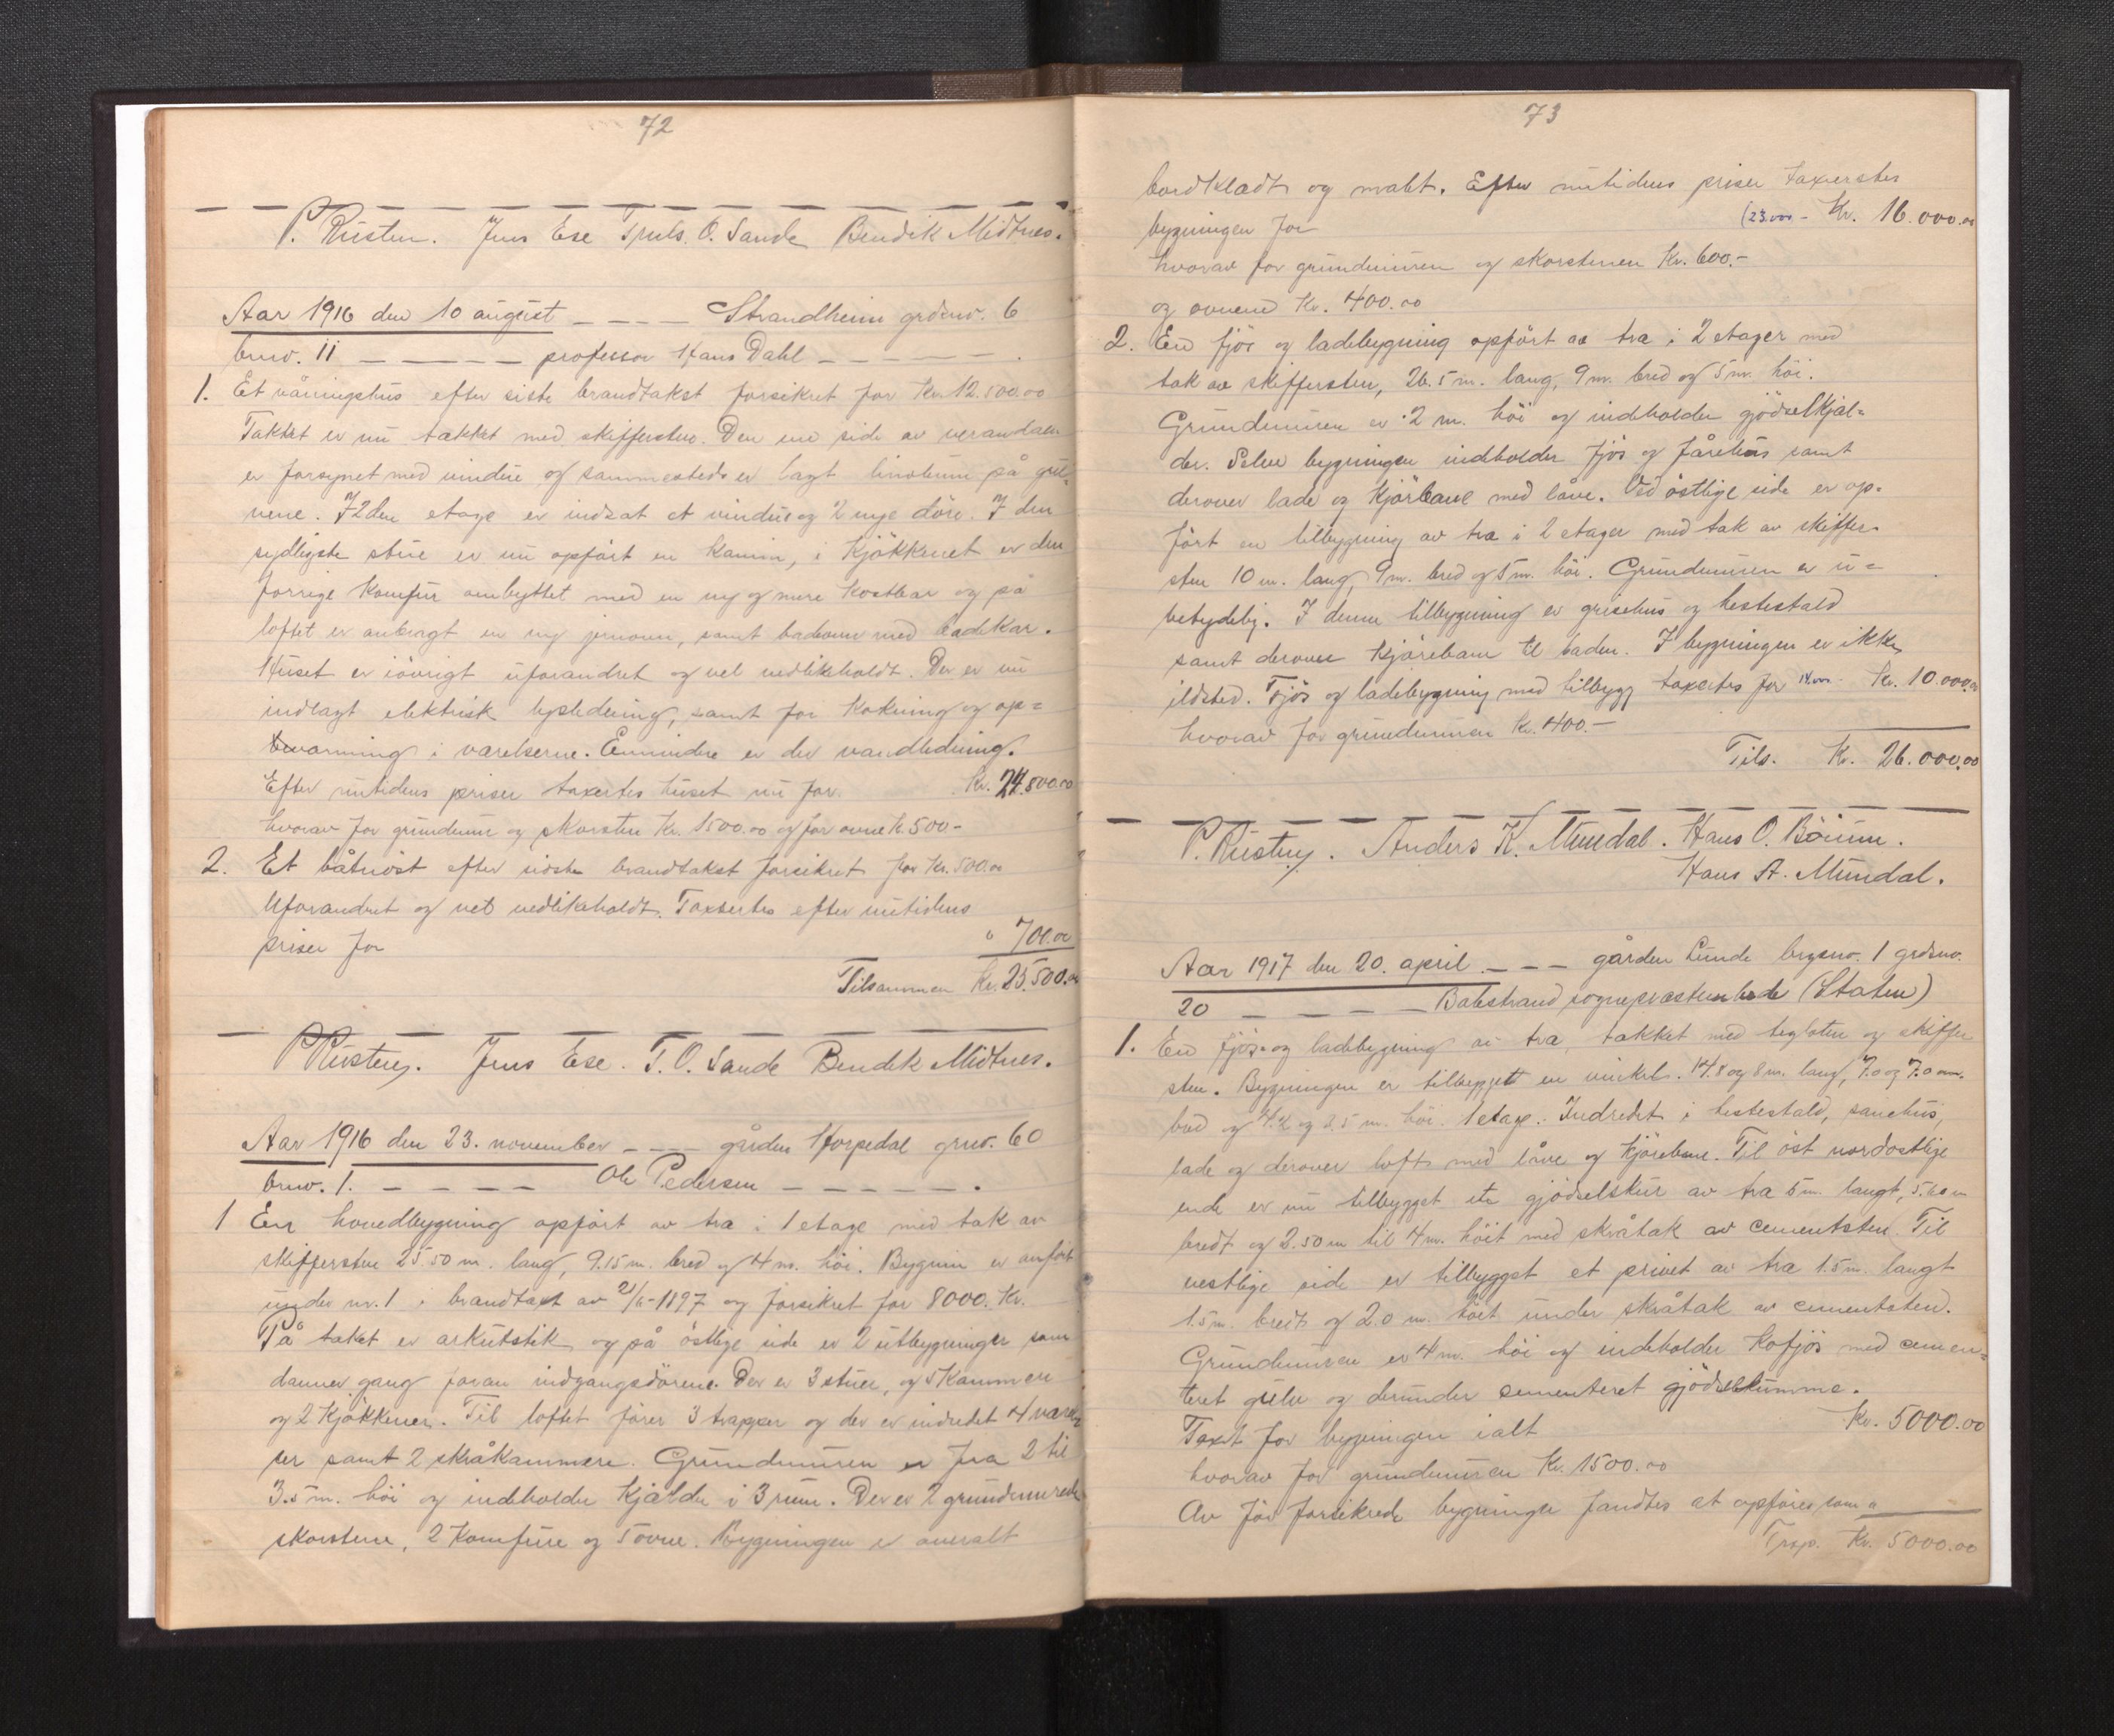 72
P. Risten. Jens Ese Truls. O. Sande Bendik Midtnes.
Aar 1916 den 10 august _ _ _ _ Strandheim grdsnr. 6
brnr. 11 _ _ _ _ _ professor Hans Dahl _ _ _ _ _ .
1. Et våningshus efter siste brandtakst forsikret for Kr. 12.500.00
Taktet er nu tækket med skiffersten. Den ene side av verandaen
er forsynet med vindu og sammesteds er lagt linoleum på gul-
vene. I 2den etage er indsat et vindu og 2 nye döre. I den
sydligste stue er nu opfört en kamin, i kjökkenet er den
forrige komfur ombyttet med en ny og mere kostbar og på
loftet er anbragt en ny jernovn, samt badeovn med badekar.
Huset er iövrigt uforandret og vel vedlikeholdt. Der er nu
indlagt elektrisk lysledning, samt for kokning og op=
varmning i værelserne. Enmindre er der vandledning.
Efter nutidens priser taxertes huset nu for. Kr. 24.800.00
hvorav for grundmur og skorsten Kr. 1500.00 og for ovne K. 500-
2. Et båtnöst efter sidste brandtakst forsikret for Kr. 500.00
Uforandret og vel vedlikeholdt. Taxertes efter nutidens
priser for " 700.00
Tilsammen Kr. 25.500.00
P Risten. Jens Ese. T. O. Sande Bendik Midtnes.
Aar 1916 den 23. november _ _ _ gården Horpedal grnr. 60
brnr. 1. _ _ _ _ _ Ole Pedersen _ _ _ _ _ .
1 En hovedbygning opfört av træ i 1 etage med tak av
skiffersten 25.50 m. lang, 9.15 m. bred og 4 m. höi. Bygnin er anfört
under nr. 1 i brandtaxt av 21/6-1897 og forsikret for 8000. Kr.
På taket er arkutstik og på östlige side er 2 utbygninger som
danner gang foran indgangsdörene. Der er 3 stuer, og 5 kammere
og 2 kjökkener. Til loftet förer 3 trapper og der er indredet 4 værel
ser samt 2 skråkammere. Grundmuren er fra 2 til
3.5 m. höi og indeholder kjælder i 3 rum. Der er 2 grundmurede
skorstene, 2 komfure og 5 ovne. Bygningen er overalt
73
bordklædt og malet. Efter nutidens priser taxertes
bygningen for (23.000 - Kr. 16.000.00
hvorav for grundmuren og skorstenen Kr. 600.-
og ovnene Kr. 400.00
2. En fjös og ladebygning opfört av træ i 2 etager med
tak av skiffersten, 26.5 m. lang, 9 m. bred og 5 m. höi.
Grundmuren er 2 m. höi og indeholder gjödselkjæl=
der. Selve bygningen indeholder fjös og fårehus samt
derover lade og kjörbane med låve. Ved östlige side er op-
fört en tilbygning av træ i 2 etager med tak av skiffer-
sten 10 m. lang, 9 m. bred og 5 m. höi. Grundmuren er u=
betydelig. I denne tilbygning er grisehus og hestestald
samt derover kjörebane til laden. I bygningen er ikke
ildsted. Fjös og ladebygning med tilbygg taxertes for 14.000 - Kr. 10.000.00
hvorav for grundmuren Kr. 400.-
Tils. Kr. 26.000.00
P. Risten. Anders K. Mundal. Hans O. Böium.
Hans A. Mundal.
Aar 1917 den 20. april _ _ _ gården Lunde brgsnr. 1 grdsnr.
20 _ _ _ _ Balestrand sogneprestembede (Staten)
1. En fjös- og ladebygning av træ, tækket med teglsten og skiffer
sten. Bygningen er tilbygget en vinkel. 14.8 og 8 m. lang, 7.0 og 7.0 m.
bred og 4.2 og 3.5 m. höi. 1 etage. Indredet i hestestald, sauehus,
lade og derover loft med låve og kjörebane. Til öst nordostlige
ende er nu tilbygget et gjödselskur av træ 5 m. langt, 5.60 m
bredt og 2.50 m til 4 m. höit med skråtak av cementsten. Til
vestlige side er tilbygget et privet av træ 1.5 m. langt
1.5 m. bredt og 2.0 m. höit under skråtak av cementsten.
Grundmuren er 4 m. höi og indeholder kofjös med cemen=
teret gulv og derunder cementeret gjödselkumme.
Taxt for bygningen ialt Kr. 5000.00
hvorav for grundmuren Kr. 1500.00
Av för forsikrede bygninger fandtes at opföres som
Trsp. Kr. 5000.00